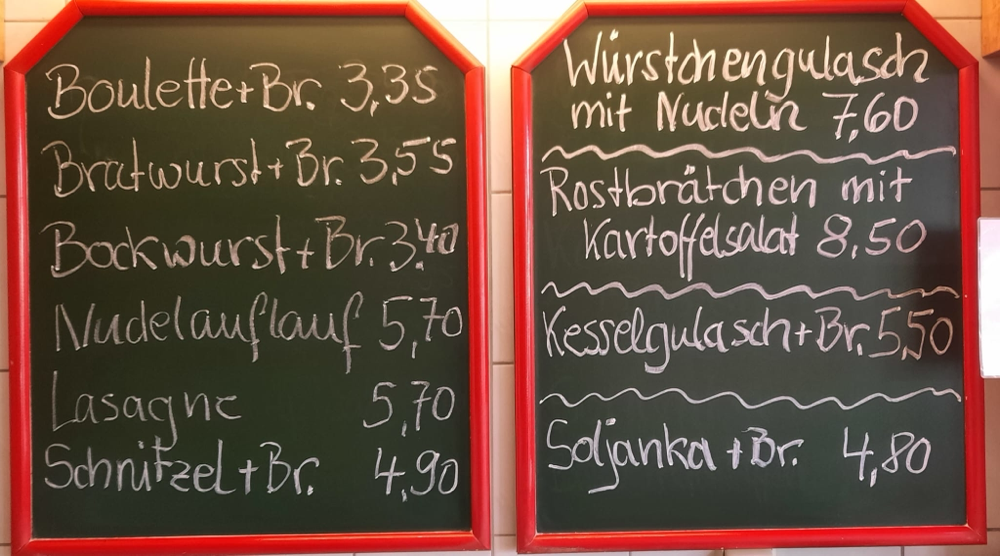 Boulette+Br. 3,35
Bratwurst+Br. 3,55
Bockwurst+Br. 3,40
Nudelauflauf 5,70
Lasagne 5,70
Schnitzel+Br. 4,90
Würstchengulasch
mit Nudeln 7,60
Rostbrätchen mit
Kartoffelsalat 8,50
Kesselgulasch+Br. 5,50
Soljanka+Br. 4,80